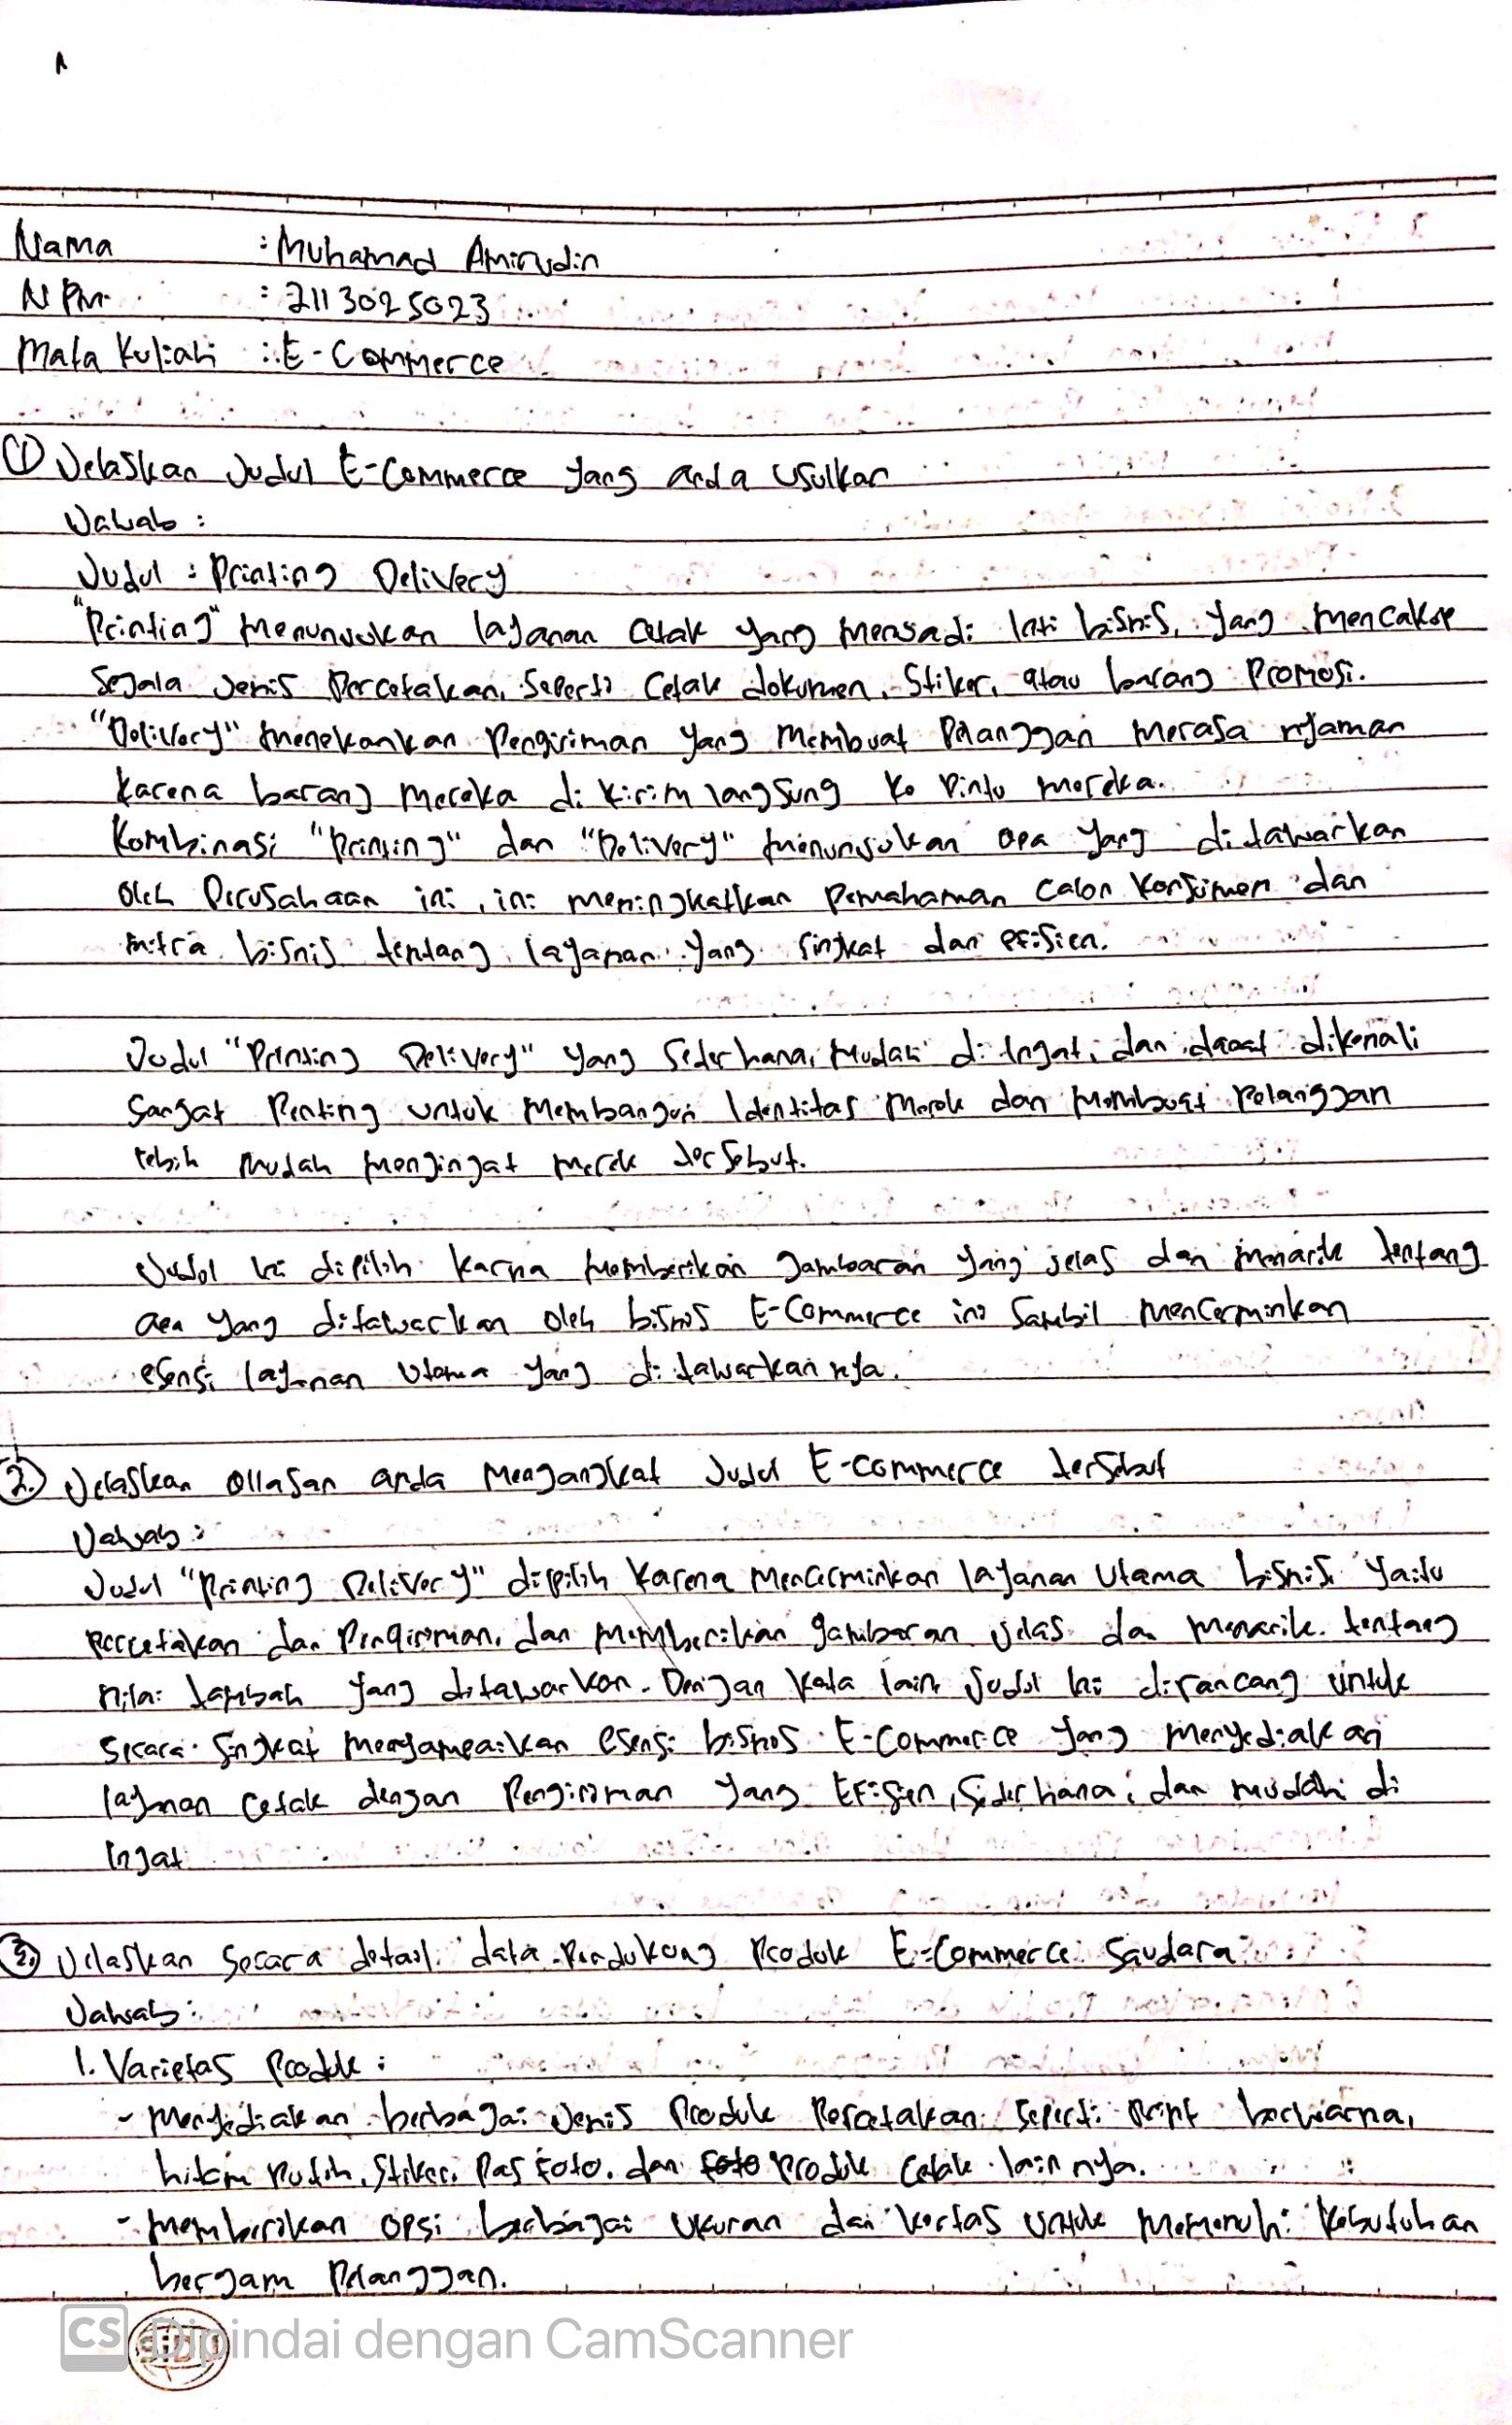 Nama : Muhamad Amirudin
NPM : 2113025023
Mata Kuliah : E-Commerce
① Jelaskan Judul E-Commerce yang anda usulkan
Jawab :
Judul : Printing Delivery
"Printing" menunjukan layanan cetak yang menjadi inti bisnis, yang mencakup
segala jenis percetakan, seperti cetak dokumen, stiker, atau barang promosi.
"Delivery" menekankan pengiriman yang membuat pelanggan merasa nyaman
karena barang mereka di kirim langsung ke pintu mereka.
Kombinasi "Printing" dan "Delivery" menunjukan apa yang ditawarkan
oleh perusahaan ini, ini meningkatkan pemahaman calon konsumen dan
mitra bisnis tentang layanan yang singkat dan efisien.
Judul "Printing Delivery" yang sederhana, mudah di ingat, dan dapat dikenali
sangat penting untuk membangun identitas merek dan membuat pelanggan
lebih mudah mengingat merek tersebut.
Judul ini dipilih karna memberikan gambaran yang jelas dan menarik tentang
apa yang ditawarkan oleh bisnis E-Commerce ini sambil mencerminkan
esensi layanan utama yang di tawarkan nya.
②. Jelaskan allasan anda mengangkat Judul E-commerce tersebut
Jawab :
Judul "Printing Delivery" dipilih karena mencerminkan layanan utama bisnis, yaitu
percetakan dan pengiriman, dan memberikan gambaran jelas dan menarik tentang
nilai tambah yang ditawarkan. Dengan kata lain, Judul ini dirancang untuk
secara singkat menyampaikan esensi bisnis E-Commerce yang menyediakan
layanan cetak dengan pengiriman yang Efisien, Sederhana, dan mudah di
ingat
③. Jelaskan secara detail data pendukung produk E-Commerce Saudara
Jawab :
1. Varietas Produk :
- Menyediakan berbagai jenis produk percetakan seperti print berwarna,
hitam putih, stiker, pas foto, dan produk cetak lain nya.
- memberikan opsi berbagai ukuran dan kertas untuk memenuhi kebutuhan
bergam pelanggan.
CS Dipindai dengan CamScanner